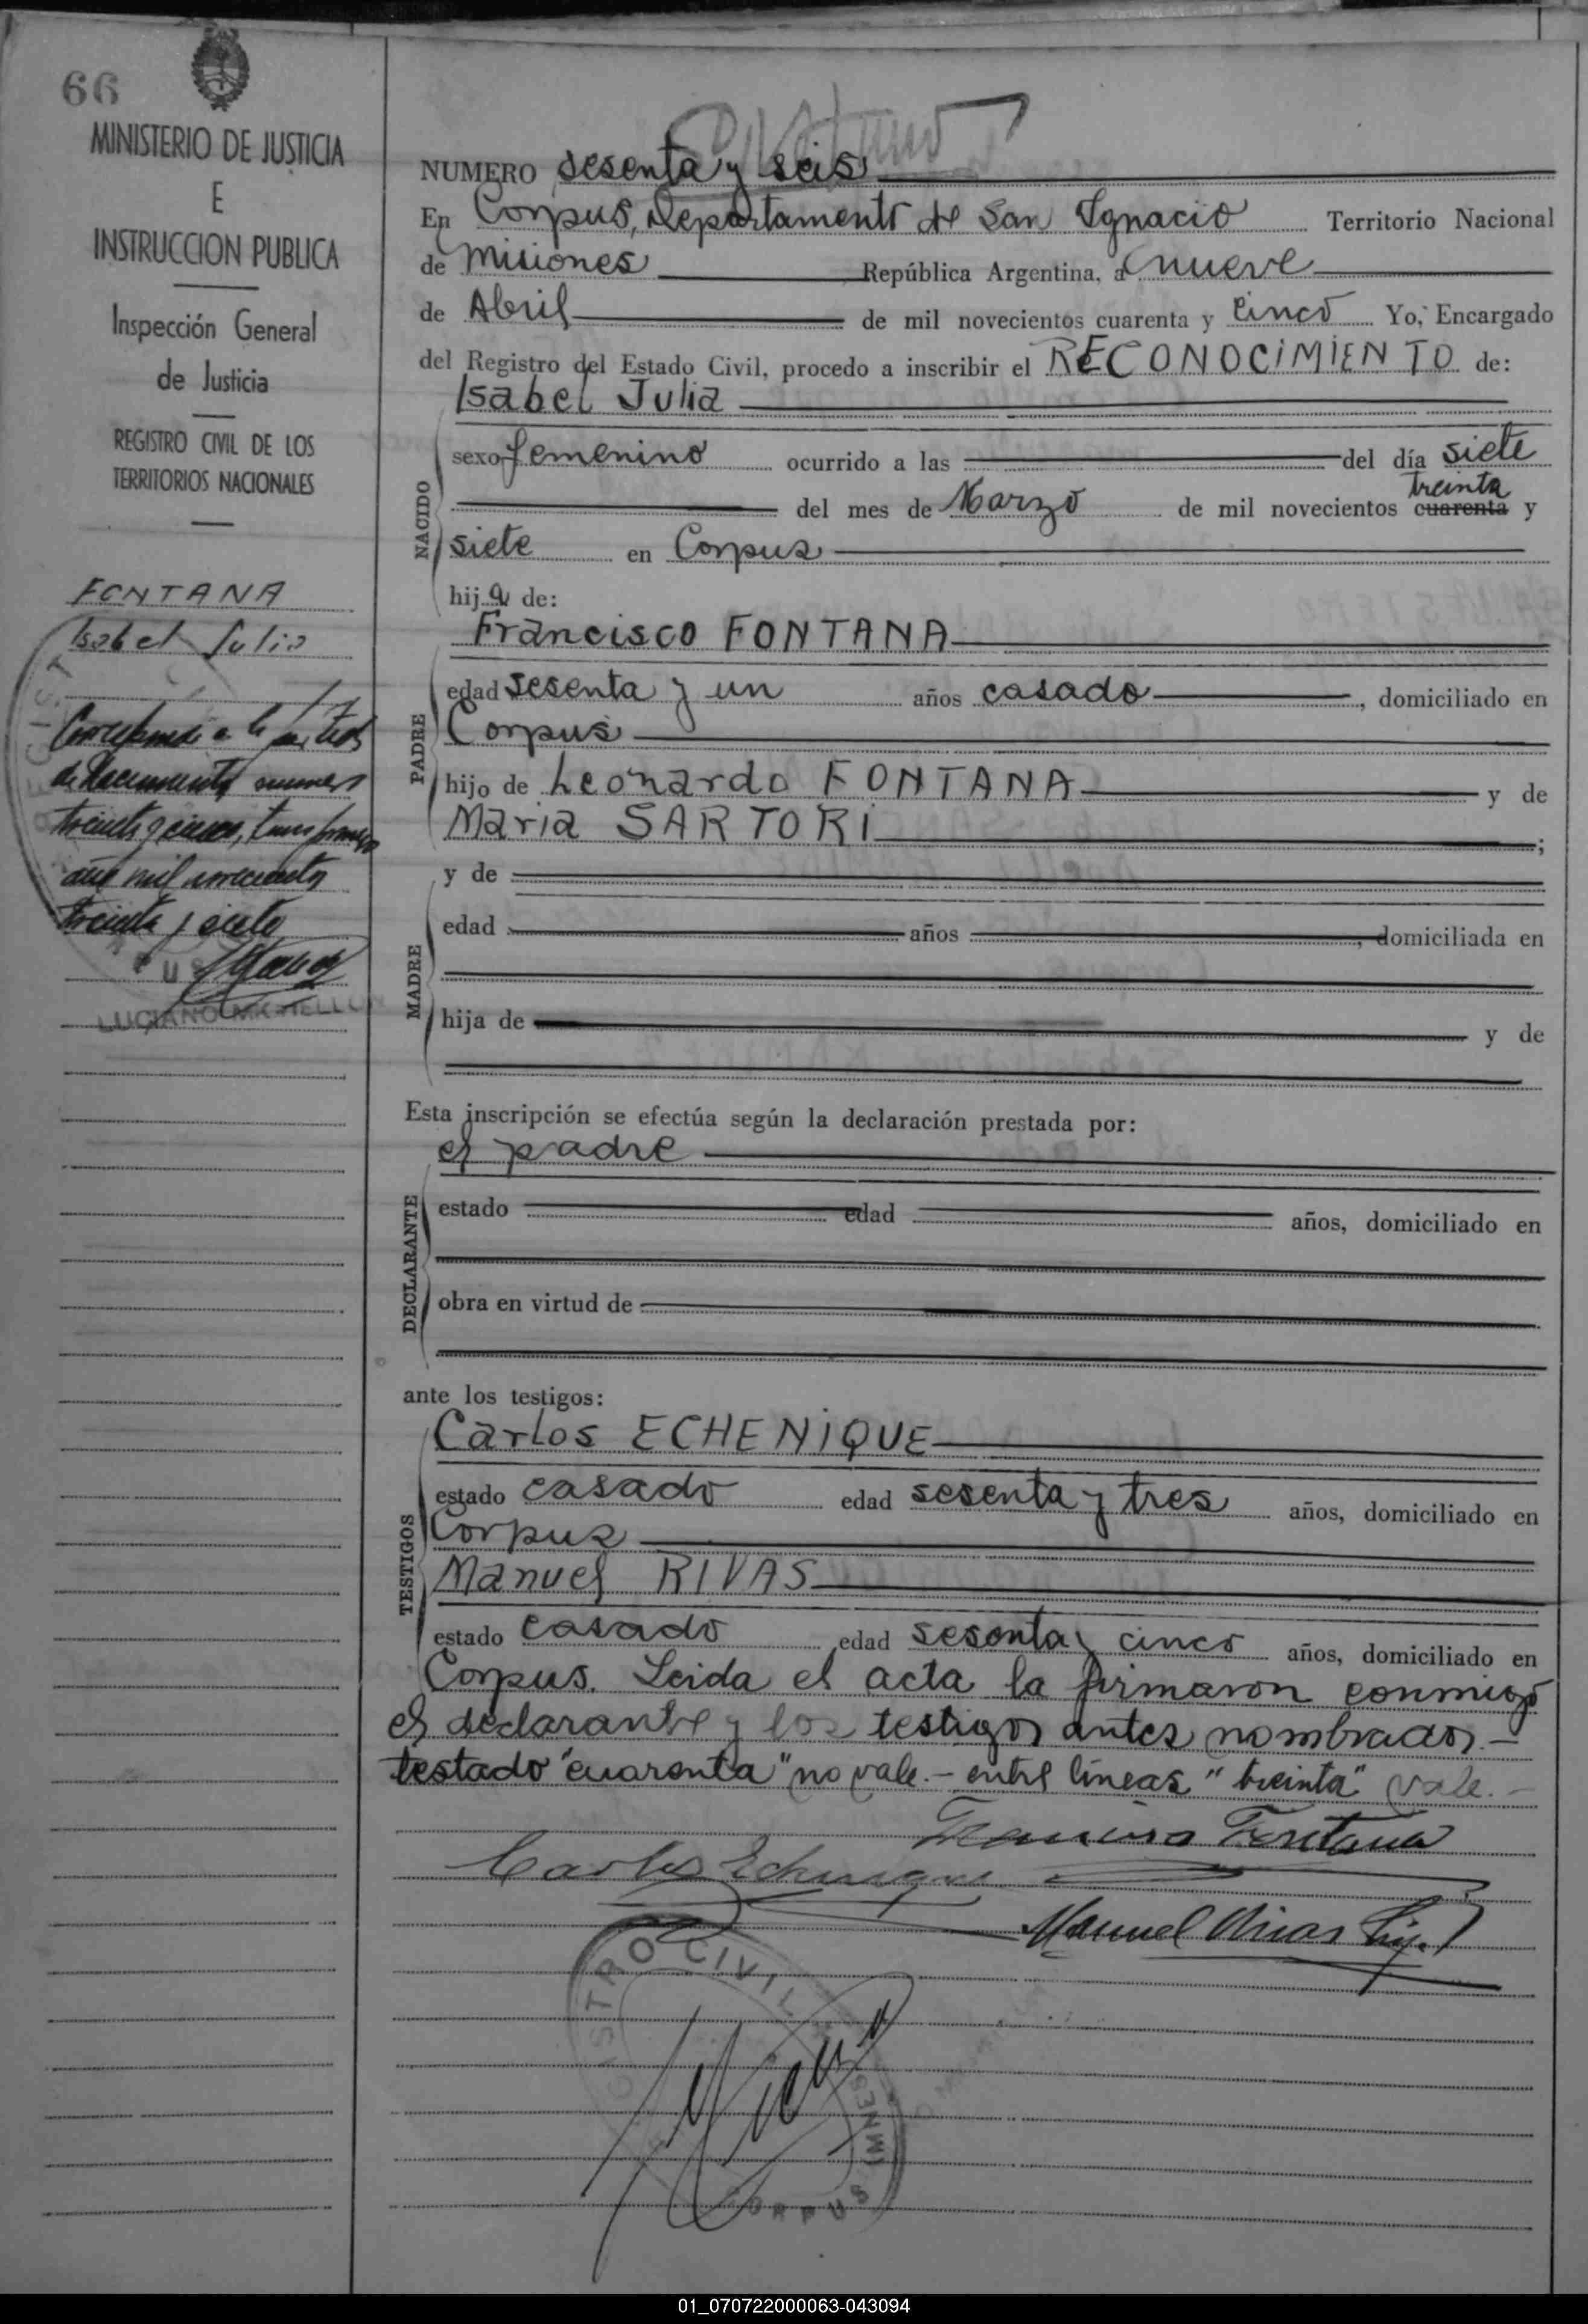 66
MINISTERIO DE JUSTICIA
E
INSTRUCCION PUBLICA
Inspección General
de Justicia
REGISTRO CIVIL DE LOS
TERRITORIOS NACIONALES
FONTANA
Isabel Julia
Corresponde a la
de Nacimiento numero
treinta y cinco, tomo primero
año mil novecientos
treinta y siete
LUCIANO
NUMERO sesenta y seis
En Corpus, Departamento de San Ignacio Territorio Nacional
de Misiones República Argentina, a nueve
de Abril de mil novecientos cuarenta y cinco Yo, Encargado
del Registro del Estado Civil, procedo a inscribir el RECONOCIMIENTO de:
Isabel Julia
NACIDO
sexo femenino ocurrido a las del día siete
treinta
del mes de Marzo de mil novecientos cuarenta y
siete en Corpus
hija de:
Francisco FONTANA
PADRE
edad sesenta y un años casado, domiciliado en
Corpus
hijo de Leonardo FONTANA y de
Maria SARTORI;
y de
MADRE
edad años, domiciliada en
hija de y de
Esta inscripción se efectúa según la declaración prestada por:
el padre
DECLARANTE
estado edad años, domiciliado en
obra en virtud de
ante los testigos:
Carlos ECHENIQUE
TESTIGOS
estado casado edad sesenta y tres años, domiciliado en
Corpus
Manuel RIVAS
estado casado edad sesenta y cinco años, domiciliado en
Corpus. Leida el acta la firmaron conmigo
el declarante y los testigos antes nombrados.—
testado "cuarenta" no vale.— entre líneas "treinta" vale.—
Francisco Fontana
Carlos Echenique
Manuel Rivas
REGISTRO CIVIL
CORPUS (MNES
01_070722000063-043094